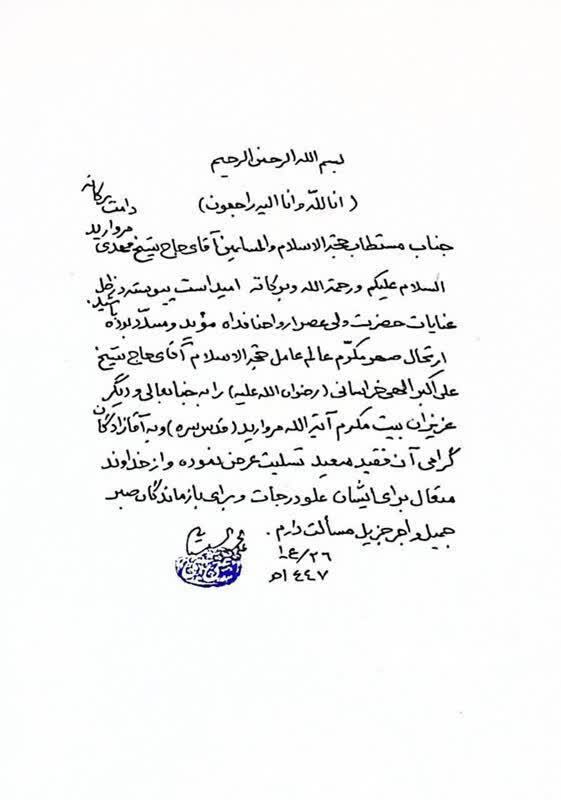 بسم الله الرحمن الرحیم
(انا لله و انا الیه راجعون)
جناب مستطاب حجة الاسلام والمسلمین آقای حاج شیخ مهدی مروارید دامت برکاته
السلام علیکم و رحمة الله و برکاته امید است پیوسته در ظل
عنایات حضرت ولی عصر ارواحنا فداه مؤید و مسدّد بوده باشید.
ارتحال صهر مکرّم عالم عامل حجة الاسلام آقای حاج شیخ
علی اکبر الهی خراسانی (رضوان الله علیه) را به جنابعالی و دیگر
عزیزان بیت مکرم آیة الله مروارید (قدس سره) و به آقازادگان
گرامی آن فقید سعید تسلیت عرض نموده و از خداوند
متعال برای ایشان علو درجات و برای بازماندگان صبر
جمیل و اجر جزیل مسألت دارم.
۲۶/ع۱
۱۴۴۷ه